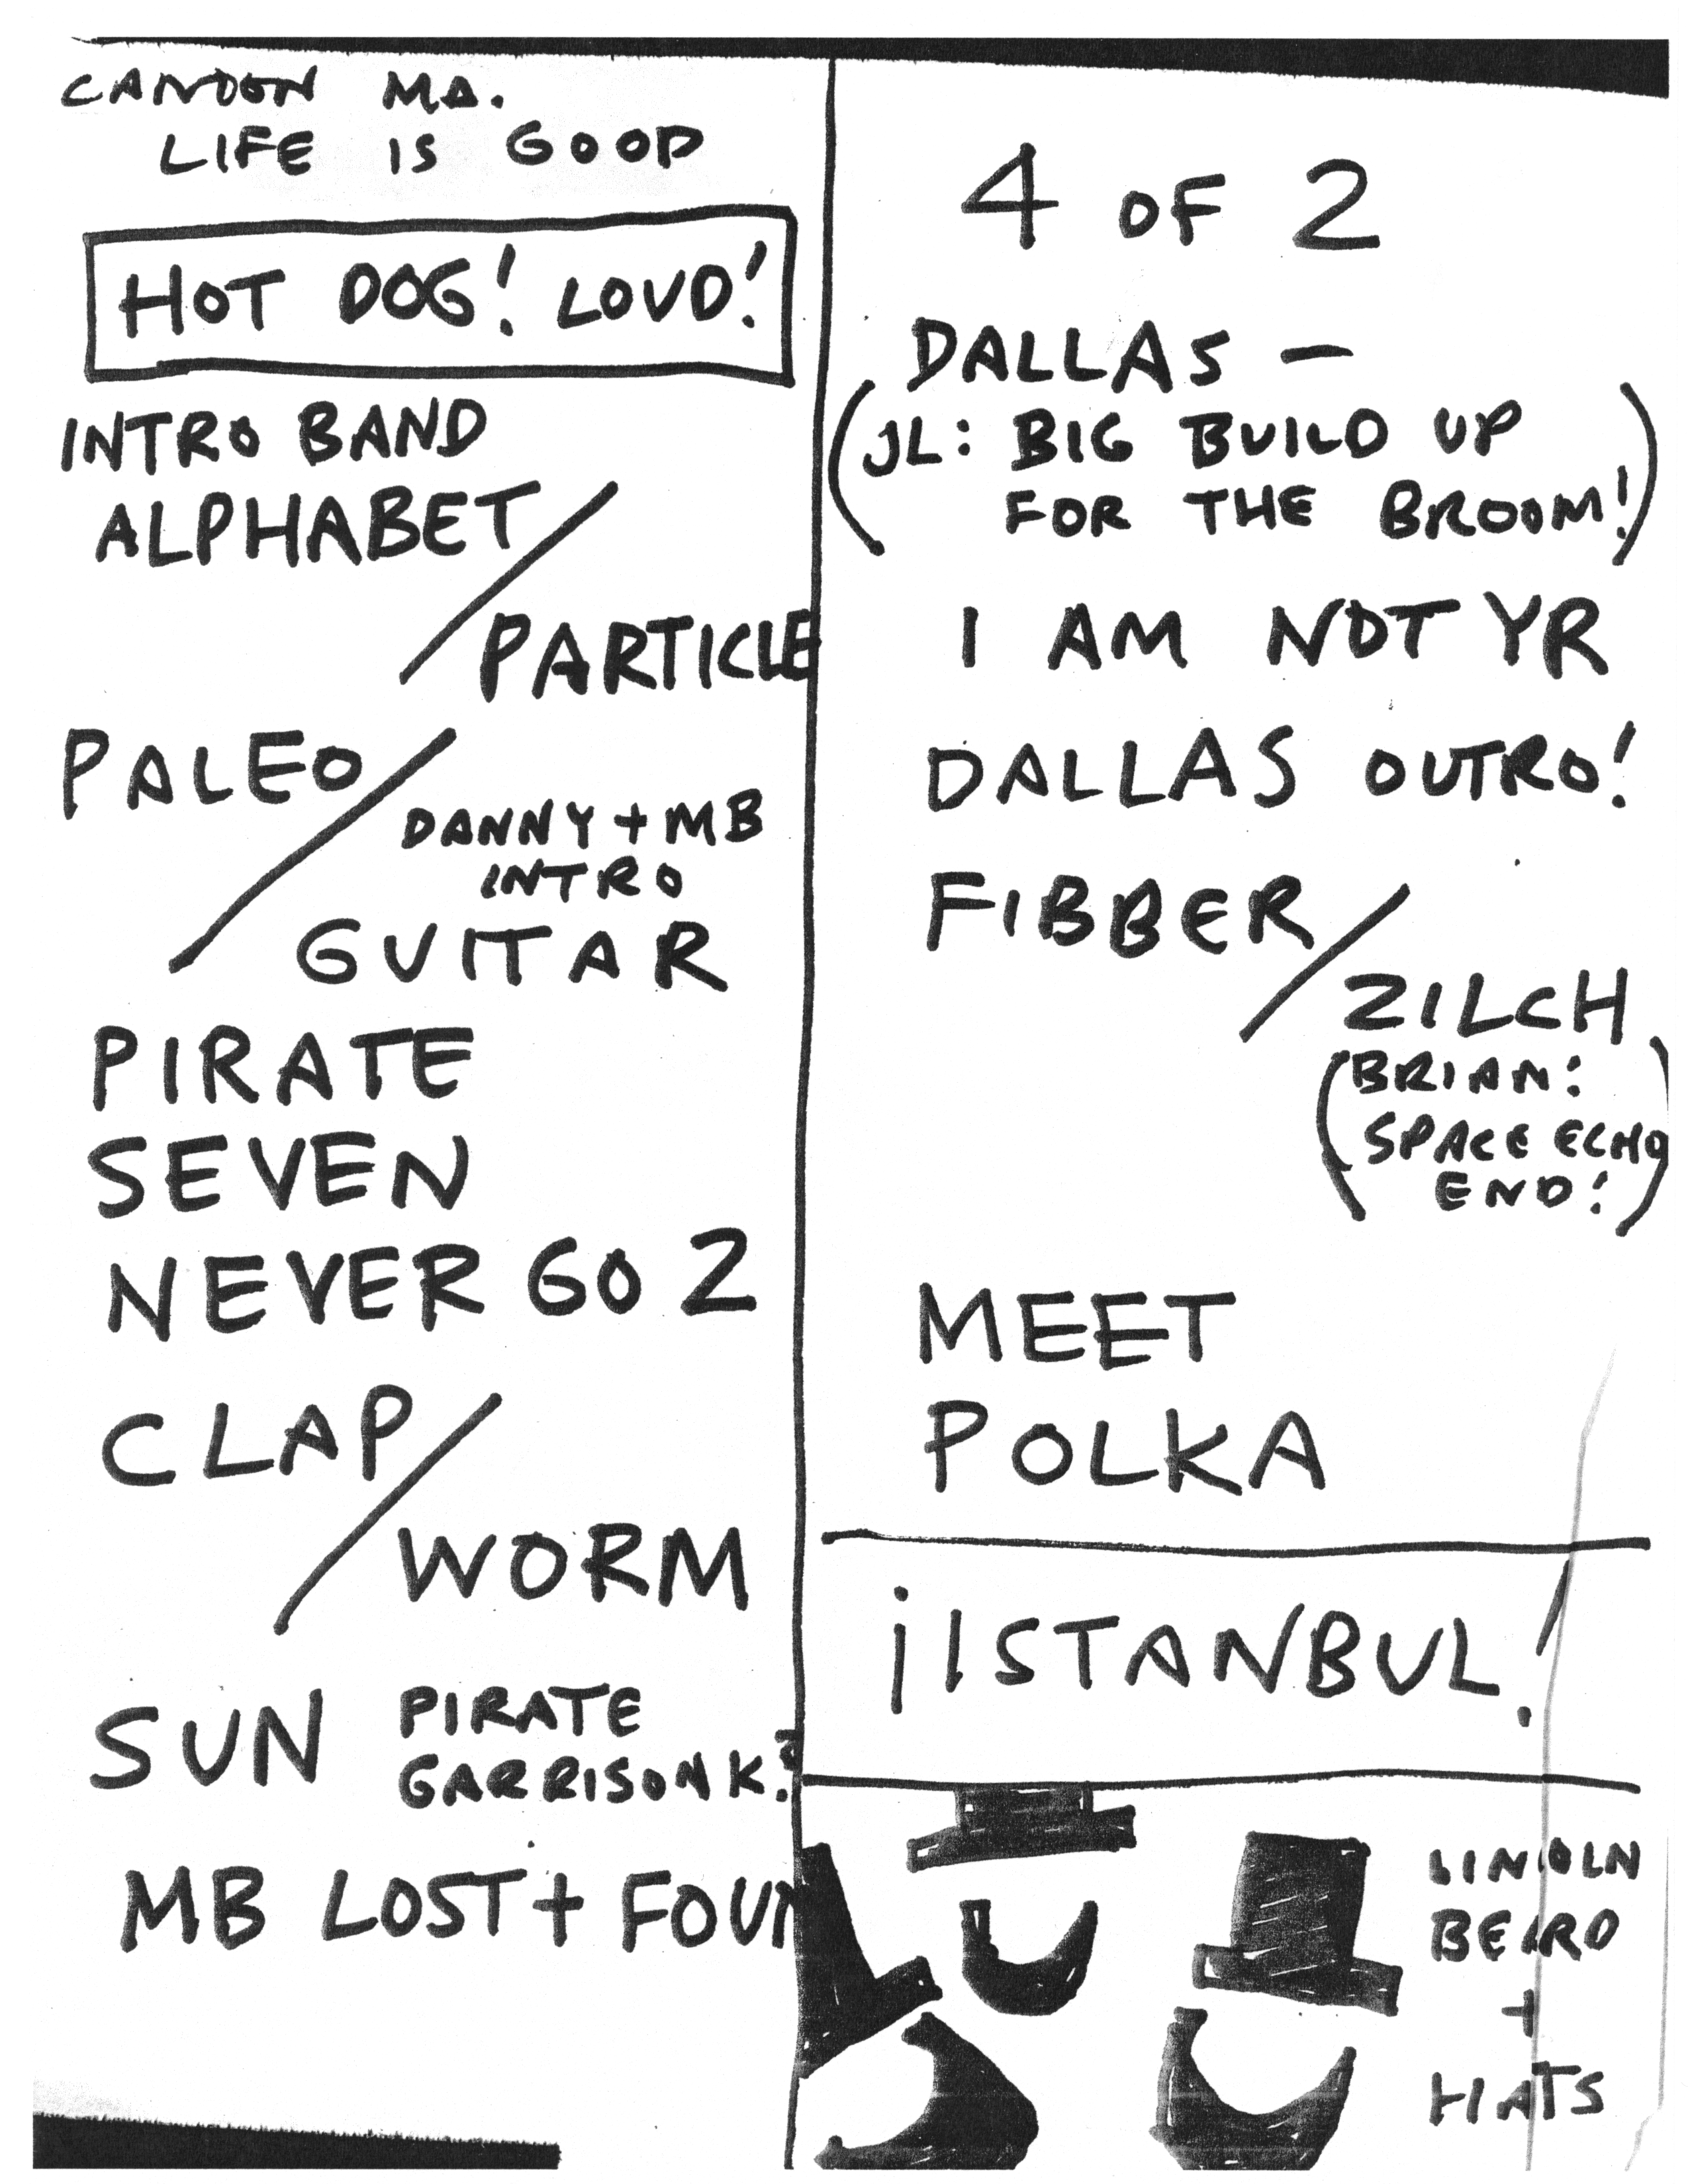 CANDON MA.
LIFE IS GOOD
HOT DOG! LOUD!
INTRO BAND
ALPHABET/
PARTICLE
PALEO/
DANNY + MB
INTRO
GUITAR
PIRATE
SEVEN
NEVER GO 2
CLAP/
WORM
SUN PIRATE
GARRISON K.?
MB LOST + FOUN
4 OF 2
DALLAS –
(JL: BIG BUILD UP
FOR THE BROOM!)
I AM NOT YR
DALLAS OUTRO!
FIBBER/
ZILCH
(BRIAN:
SPACE ECHO
END!)
MEET
POLKA
¡ISTANBUL!
LINCOLN
BEARD
+
HATS